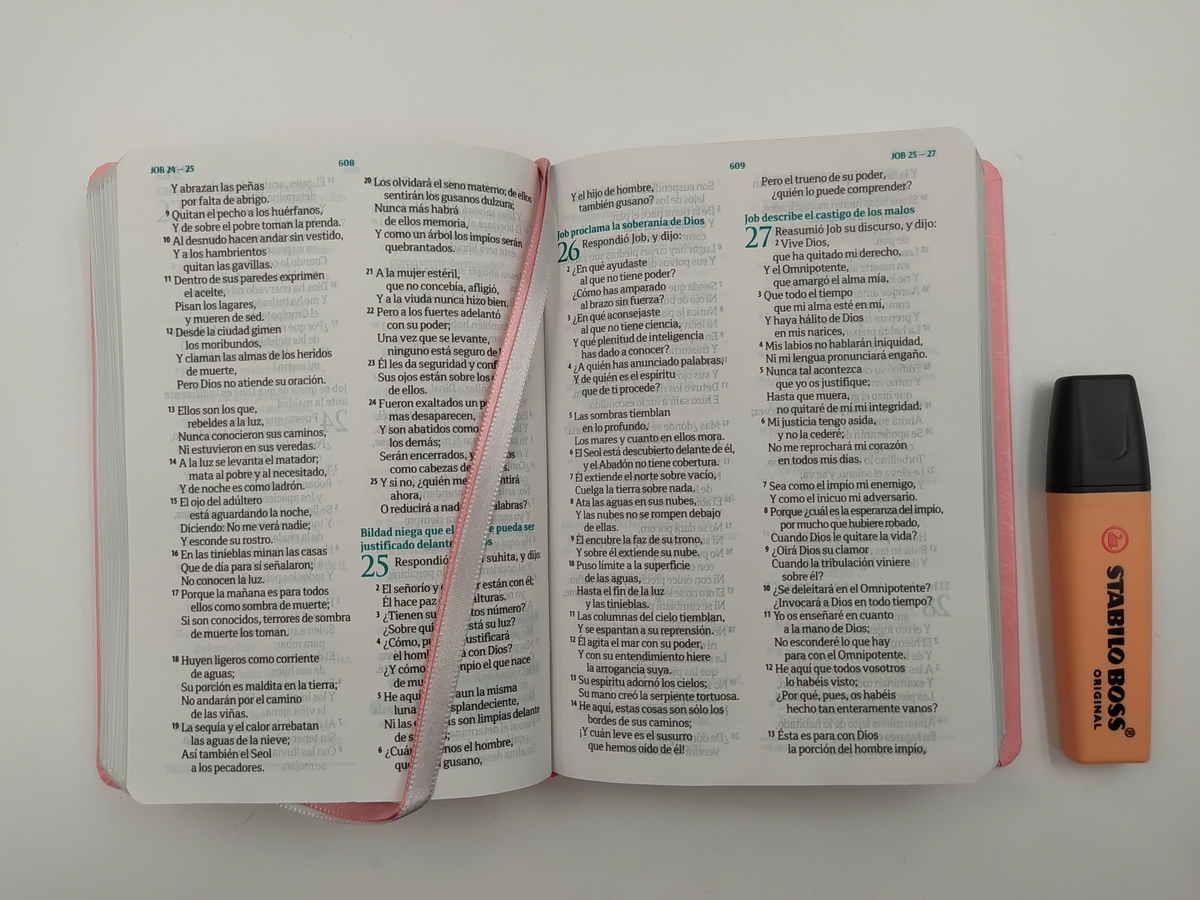 JOB 24—25
608
Y abrazan las peñas
por falta de abrigo.
9 Quitan el pecho a los huérfanos,
Y de sobre el pobre toman la prenda.
10 Al desnudo hacen andar sin vestido,
Y a los hambrientos
quitan las gavillas.
11 Dentro de sus paredes exprimen
el aceite,
Pisan los lagares,
y mueren de sed.
12 Desde la ciudad gimen
los moribundos,
Y claman las almas de los heridos
de muerte,
Pero Dios no atiende su oración.
13 Ellos son los que,
rebeldes a la luz,
Nunca conocieron sus caminos,
Ni estuvieron en sus veredas.
14 A la luz se levanta el matador;
mata al pobre y al necesitado,
Y de noche es como ladrón.
15 El ojo del adúltero
está aguardando la noche,
Diciendo: No me verá nadie;
Y esconde su rostro.
16 En las tinieblas minan las casas
Que de día para sí señalaron;
No conocen la luz.
17 Porque la mañana es para todos
ellos como sombra de muerte;
Si son conocidos, terrores de sombra
de muerte los toman.
18 Huyen ligeros como corriente
de aguas;
Su porción es maldita en la tierra;
No andarán por el camino
de las viñas.
19 La sequía y el calor arrebatan
las aguas de la nieve;
Así también el Seol
a los pecadores.
20 Los olvidará el seno materno; de ellos
sentirán los gusanos dulzura;
Nunca más habrá
de ellos memoria,
Y como un árbol los impíos serán
quebrantados.
21 A la mujer estéril,
que no concebía, afligió,
Y a la viuda nunca hizo bien.
22 Pero a los fuertes adelantó
con su poder;
Una vez que se levante,
ninguno está seguro de
23 Él les da seguridad y
Sus ojos están sobre los
de ellos.
24 Fueron exaltados un
mas desaparecen,
Y son abatidos como
los demás;
Serán encerrados, y
como cabezas de
25 Y si no, ¿quién me
ahora,
O reducirá a
Bildad niega que el pueda ser
justificado
25 Respondió suhita, y dijo:
2 El señorío y están con él;
Él hace paz alturas.
3 ¿Tienen número?
¿Sobre está su luz?
4 ¿Cómo,
el con Dios?
¿Y cómo el que nace
de
5 He aquí aun la misma
luna
Ni las son limpias delante
de
6 el hombre,
gusano,
609
JOB 25—27
Y el hijo de hombre,
también gusano?
Job proclama la soberanía de Dios
26 Respondió Job, y dijo:
2 ¿En qué ayudaste
al que no tiene poder?
¿Cómo has amparado
al brazo sin fuerza?
3 ¿En qué aconsejaste
al que no tiene ciencia,
Y qué plenitud de inteligencia
has dado a conocer?
4 ¿A quién has anunciado palabras,
Y de quién es el espíritu
que de ti procede?
5 Las sombras tiemblan
en lo profundo,
Los mares y cuanto en ellos mora.
6 El Seol está descubierto delante de él,
y el Abadón no tiene cobertura.
7 Él extiende el norte sobre vacío,
Cuelga la tierra sobre nada.
8 Ata las aguas en sus nubes,
Y las nubes no se rompen debajo
de ellas.
9 Él encubre la faz de su trono,
Y sobre él extiende su nube.
10 Puso límite a la superficie
de las aguas,
Hasta el fin de la luz
y las tinieblas.
11 Las columnas del cielo tiemblan,
Y se espantan a su reprensión.
12 Él agita el mar con su poder,
Y con su entendimiento hiere
la arrogancia suya.
13 Su espíritu adornó los cielos;
Su mano creó la serpiente tortuosa.
14 He aquí, estas cosas son sólo los
bordes de sus caminos;
¡Y cuán leve es el susurro
que hemos oído de él!
Pero el trueno de su poder,
¿quién lo puede comprender?
Job describe el castigo de los malos
27 Reasumió Job su discurso, y dijo:
2 Vive Dios,
que ha quitado mi derecho,
Y el Omnipotente,
que amargó el alma mía,
3 Que todo el tiempo
que mi alma esté en mí,
Y haya hálito de Dios
en mis narices,
4 Mis labios no hablarán iniquidad,
Ni mi lengua pronunciará engaño.
5 Nunca tal acontezca
que yo os justifique;
Hasta que muera,
no quitaré de mí mi integridad.
6 Mi justicia tengo asida,
y no la cederé;
No me reprochará mi corazón
en todos mis días.
7 Sea como el impío mi enemigo,
Y como el inicuo mi adversario.
8 Porque ¿cuál es la esperanza del impío,
por mucho que hubiere robado,
Cuando Dios le quitare la vida?
9 ¿Oirá Dios su clamor
Cuando la tribulación viniere
sobre él?
10 ¿Se deleitará en el Omnipotente?
¿Invocará a Dios en todo tiempo?
11 Yo os enseñaré en cuanto
a la mano de Dios;
No esconderé lo que hay
para con el Omnipotente.
12 He aquí que todos vosotros
lo habéis visto;
¿Por qué, pues, os habéis
hecho tan enteramente vanos?
13 Ésta es para con Dios
la porción del hombre impío,
STABILO BOSS®
ORIGINAL